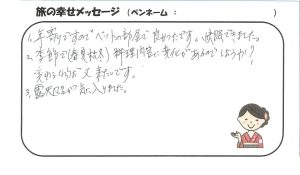 旅の幸せメッセージ (ペンネーム：　　　)
1、年寄りですのでベットの部屋で良かったです。快眠できました。
2、季節で(春夏秋冬)料理内容に変化があるのでしょうか？
変わるならば又来たいです。
3、露天風呂が気に入りました。